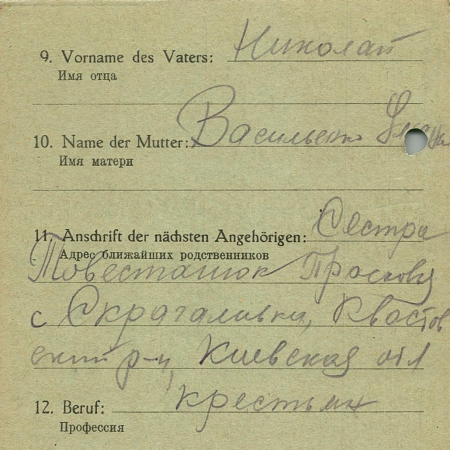 9. Vorname des Vaters: Николай
Имя отца
10. Name der Mutter: Васильенко
Имя матери
11. Anschrift der nächsten Angehörigen: Сестра
Адрес ближайших родственников
с Скрагаливка,Квастов
ский р-н, Киевская обл
12. Beruf: крестьян
Профессия